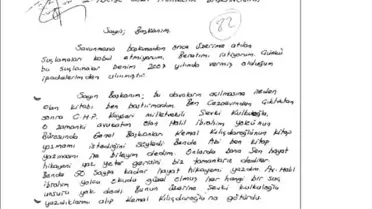 82
Sayın; Başkanım.
Savunmama başlamadan önce üzerime atılan
Suçlamaları kabul etmiyorum. Beraatımı istiyorum. Çünkü
bu suçlamalar benim 2007 yılında vermiş olduğum
ifadelerimden alınmıştır.
Sayın Başkanım; bu davaların açılmasına neden
olan kitabı ben bastırmadım. Ben Cezaevinden Çıktıktan
sonra C.H.P. Kayseri milletvekili Şevki Kulkuloğlu,
O zamanki avukatım olan Halil İbrahim yolcu'nun
Bürosunda Genel Başkanları Kemal Kılıçdaroğlunun kitap
yazmamı istediğini söyledi Bende Abi ben kitap
yazmasını ne bileyim dedim. Onlarda bana Sen hayat
hikayeni yaz yeter gerisini biz tamamlarız dediler.
Bende 50 Sayfa kadar hayat hikayemi yazdım. Av. Halil
ibrahim Yolcu okudu güzel olmuş her hangi bir suç
unsuru yok dedi. Bunun üzerine Şevki kulkuloğlu
yazdıklarımı alıp Kemal Kılıçdaroğluna götürdü.